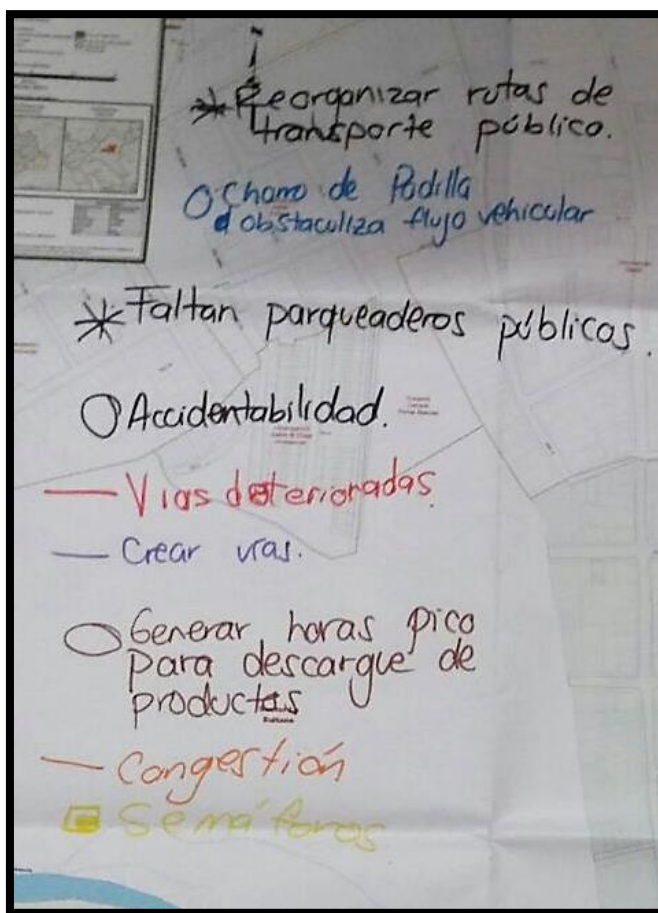 Reorganizar rutas de
transporte público.
Chamo de Padilla
obstaculiza flujo vehicular
Faltan parqueaderos públicos.
Accidentabilidad.
Vías deterioradas.
Crear vías.
Generar horas pico
para descargue de
productos
Congestión
Semáforos